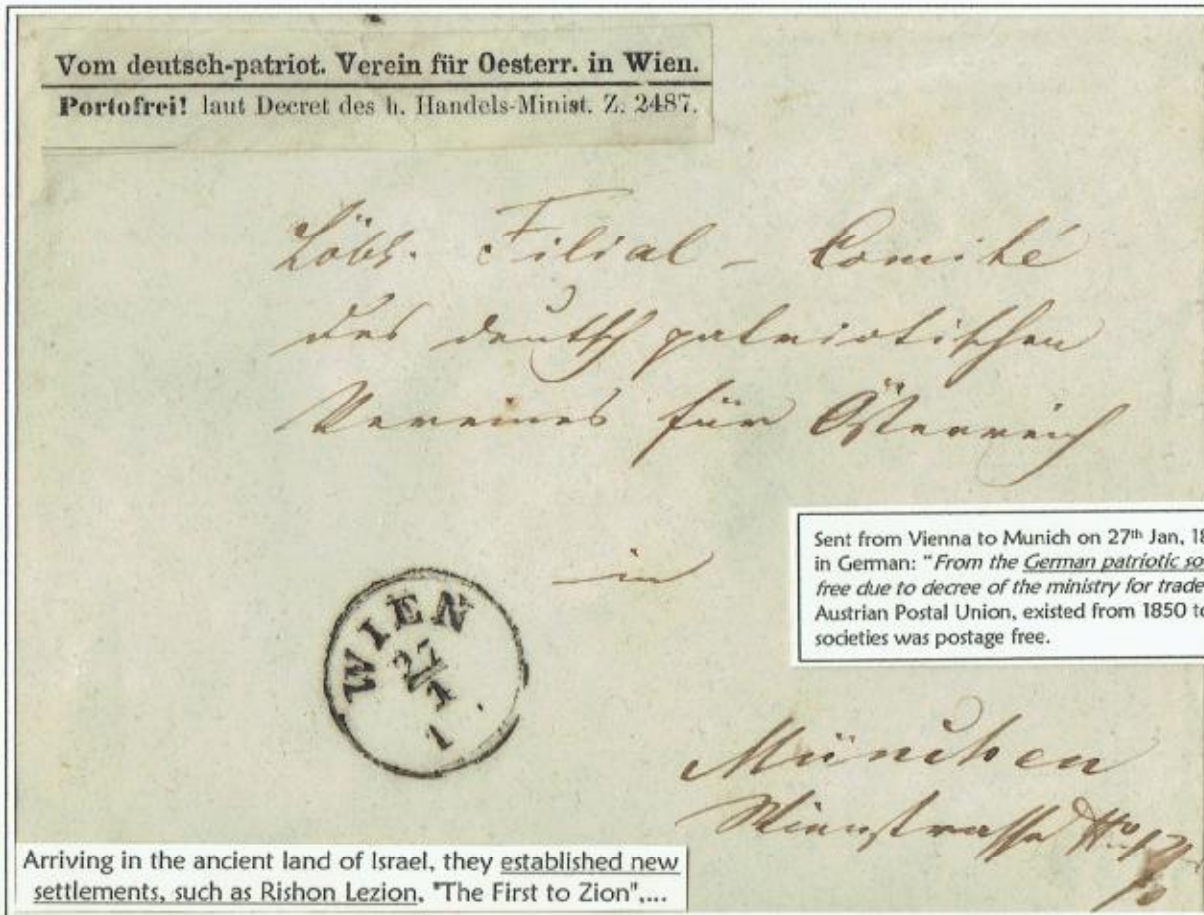 Vom deutsch-patriot. Verein für Oesterr. in Wien.
Portofrei! laut Decret des h. Handels-Minist. Z. 2487.
Löbl. Filial - Comité
des deutsch patriotischen
Vereines für Österreich
in
Sent from Vienna to Munich on 27th Jan, 18
in German: "From the German patriotic so
free due to decree of the ministry for trade
Austrian Postal Union, existed from 1850 to
societies was postage free.
WIEN
27
1
1
München
Arriving in the ancient land of Israel, they established new
settlements, such as Rishon Lezion, "The First to Zion",...